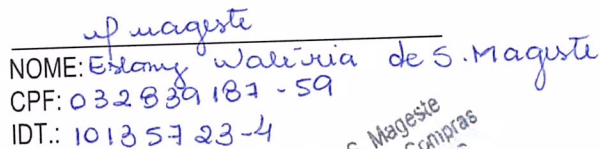 Mageste
NOME: Eslany Waléria de S. Mageste
CPF: 032839187-59
IDT.: 10135723-4
S. Mageste
Compras